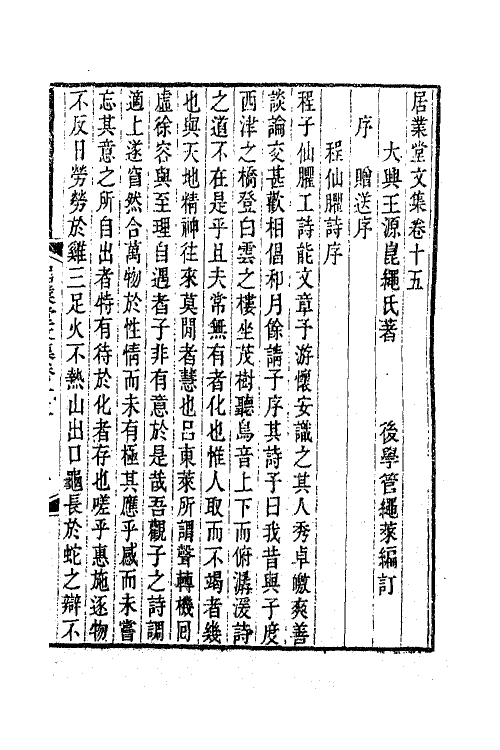 居業堂文集卷十五
大興王源崑繩氏著　後學管繩萊編訂
序　贈送序
程仙臞詩序
程子仙臞工詩能文章予游懷安識之其人秀卓曒爽善
談論交甚歡相倡和月餘請予序其詩予曰我昔與子度
西津之橋登白雲之樓坐茂樹聽鳥音上下而俯潺湲詩
之道不在是乎且夫常無有者化也惟人取而不竭者幾
也與天地精神往來莫閒者慧也呂東萊所謂聲轉機回
虛徐容與至理自遇者子非有意於是哉吾觀子之詩調
適上遂窅然合萬物於性情而未有極其應乎感而未嘗
忘其意之所自出者特有待於化者存也嗟乎惠施逐物
不反日勞勞於雞三足火不熱山出口龜長於蛇之辯不